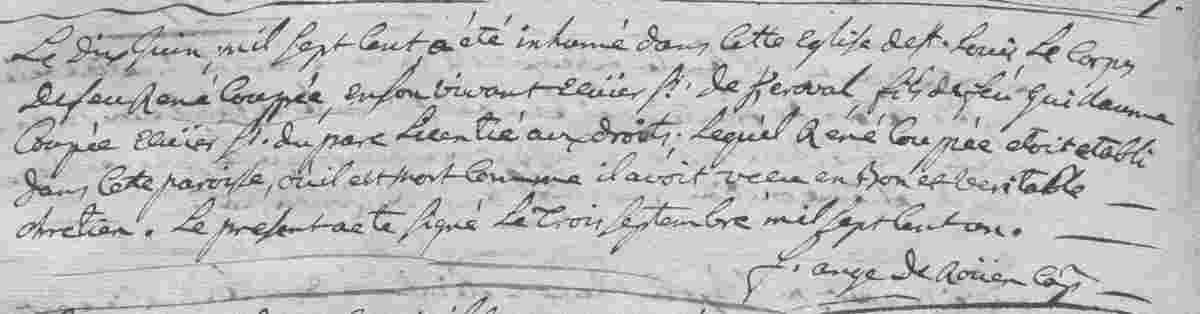 Le dix Juin, mil sept cent a été inhumé dans cette eglise de st. Louis Le Corps
de feu René Coupée, en son vivant ecuier sr. de Keroval, fils de feu Guillaume
Coupée ecuier sr. du parc Licentié aux droits; Lequel René Coupée etoit etabli
dans cette paroisse, ou il est mort comme il avoit vecu en bon et veritable
chretien. Le present acte signé Le trois septembre mil sept cent un.
f. ange de Roüen